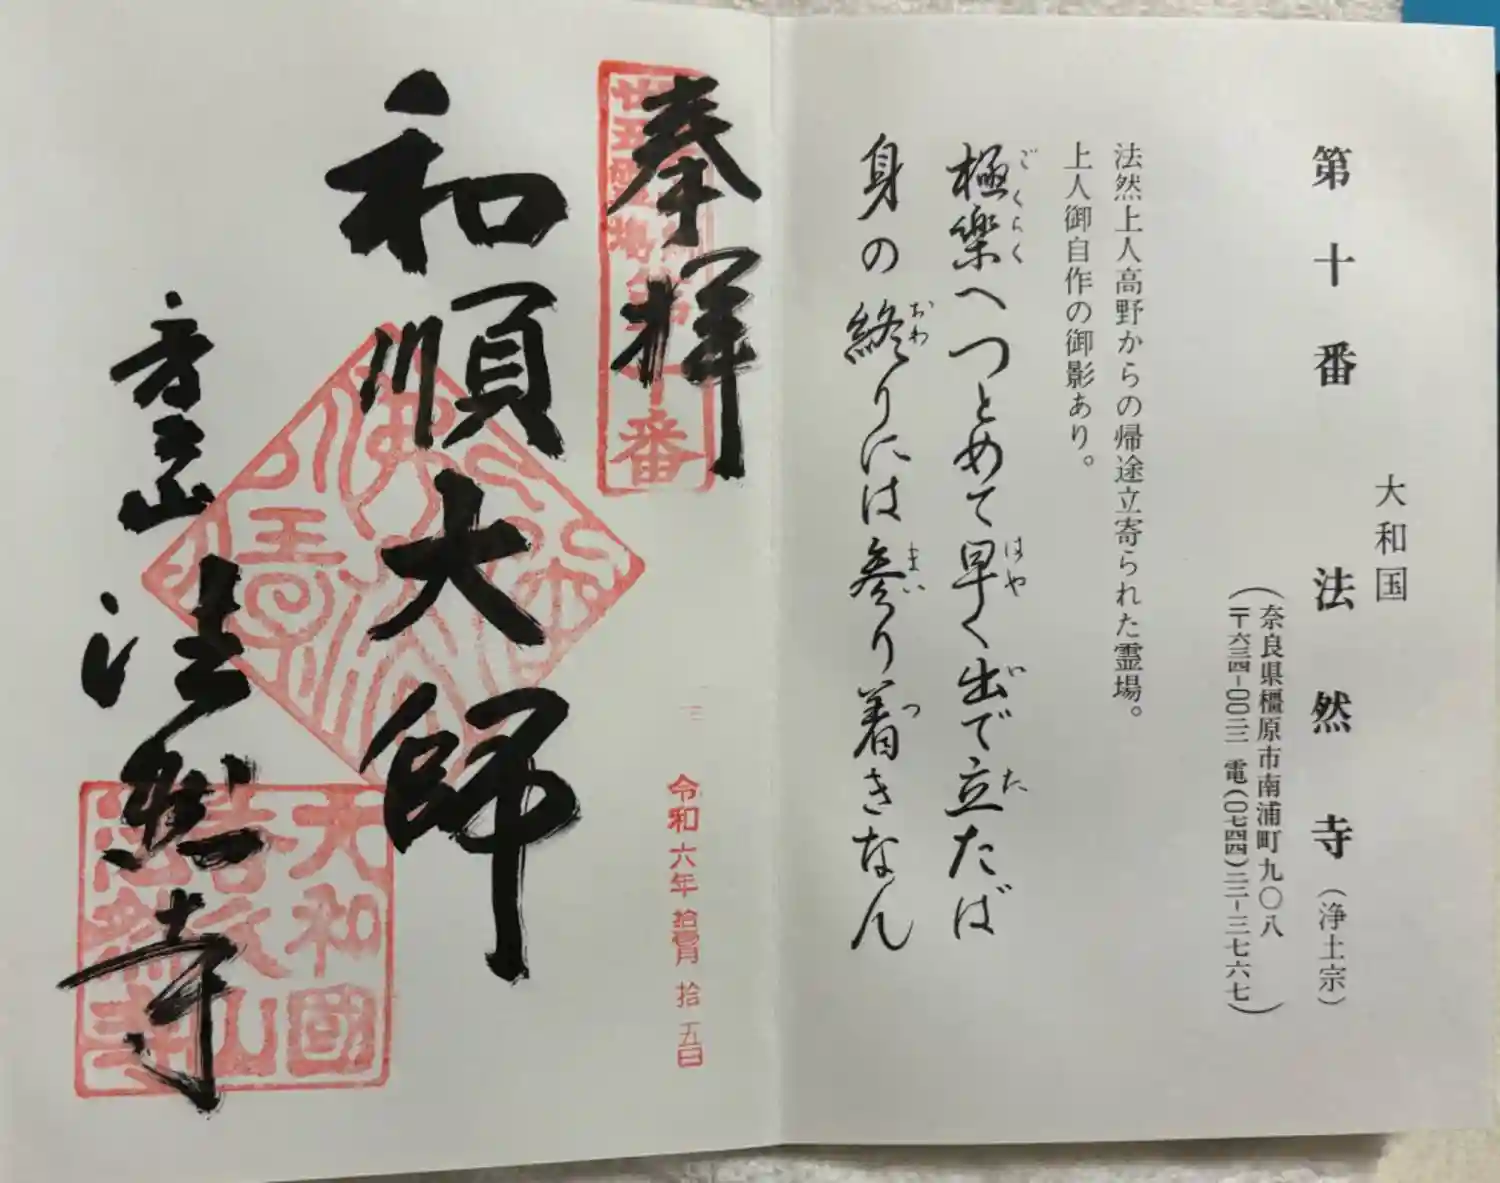 大和国
第十番 法然寺(浄土宗)
(奈良県橿原市南浦町九〇八
〒六三四-〇〇三二 電(〇七四四)二二-三七六七)
法然上人高野からの帰途立寄られた霊場。
上人御自作の御影あり。
極楽へつとめて早く出で立たば
ごくらく はや い た
身の終りには参り着きなん
おわ まい つ
奉拝
第十番
令和六年拾壹月拾五日
和順大師
法然寺
大和國
法然寺